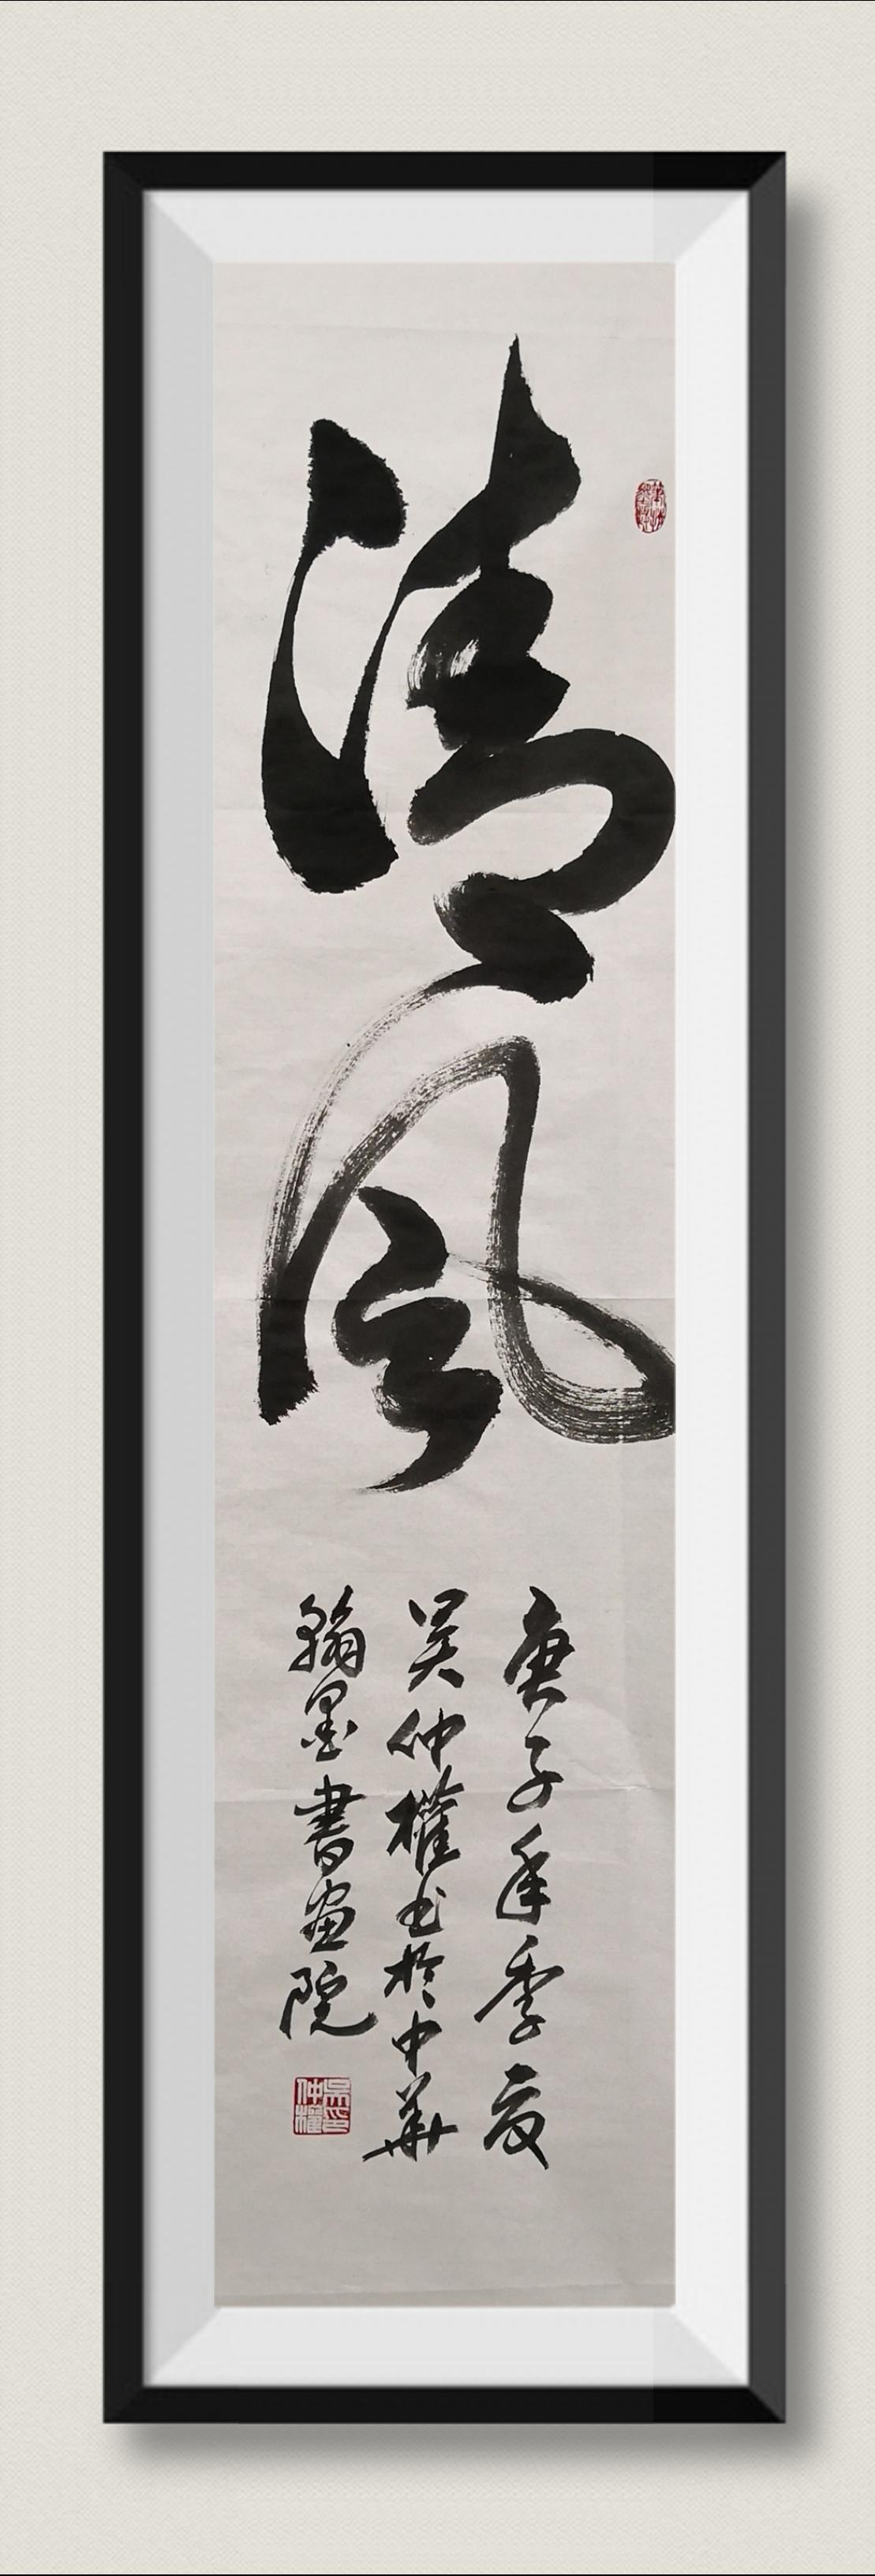 清风
庚子年季夏
吴仲權书於中華
翰墨書画院
吴印仲權